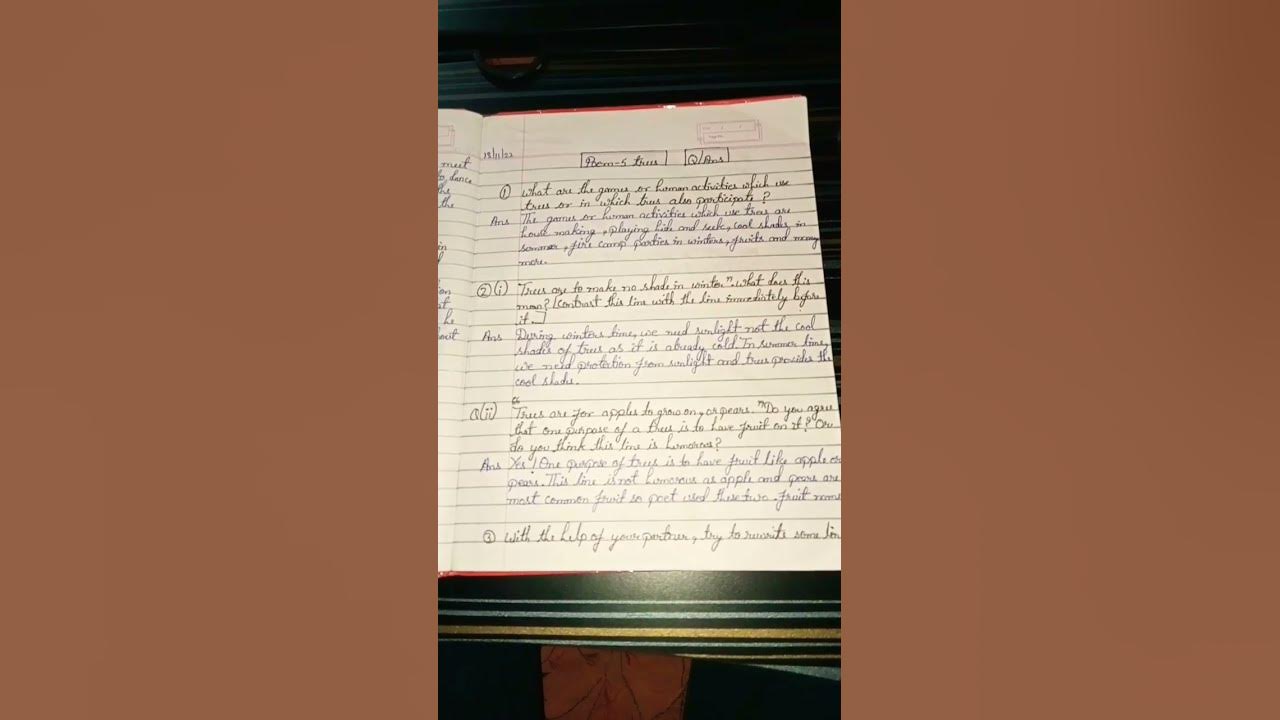 meet
to dance
the
the
in
on
at
he
out
18/11/22
Poem-5 trees
Q/Ans
① What are the games or human activities which use
trees or in which trees also participate?
Ans The games or human activities which use trees are
house making, playing hide and seek, cool shades in
sommer, fire camp parties in winters, fruits and many
more.
② (i) Trees are to make no shade in winter". What does this
mean? [Contrast this line with the line immediately before
it.]
Ans During winters time, we need sunlight not the cool
shades of trees as it is already cold. In summer time,
we need protection from sunlight and trees provides the
cool shades.
Q(ii) "Trees are for apples to grow on, or pears. "Do you agree
that one purpose of a trees is to have fruit on it? Or
do you think this line is humorous?
Ans Yes! One purpose of trees is to have fruit like apple or
pears. This line is not humorous as apple and pears are
most common fruit so poet used these two fruit name
③ With the help of your partner, try to rewrite some lin